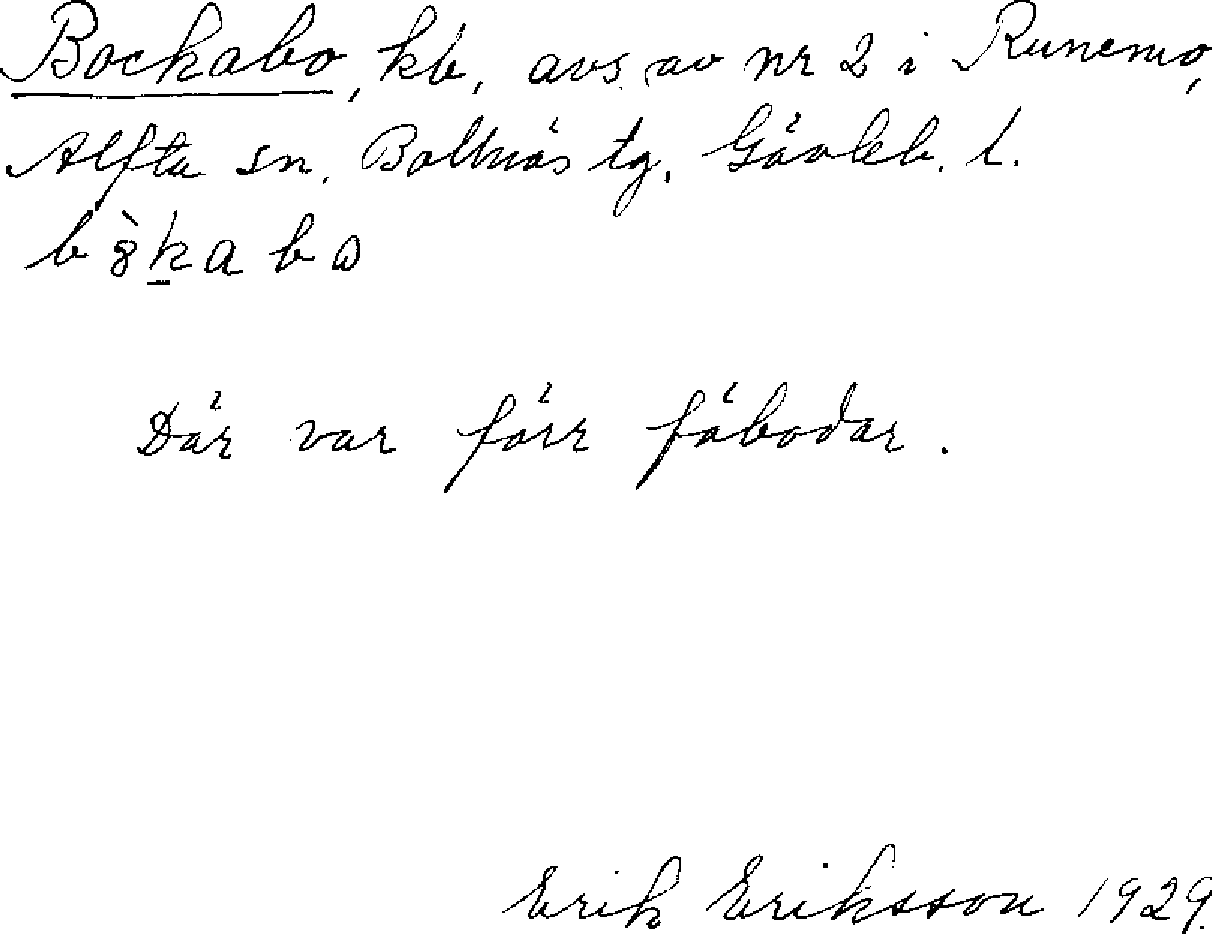 Bockabo, kb, avs. av nr 2 i Runemo,
Alfta sn. Bollnäs tg. Gävleb. l.
Där var förr fäbodar.
Erik Eriksson 1929.